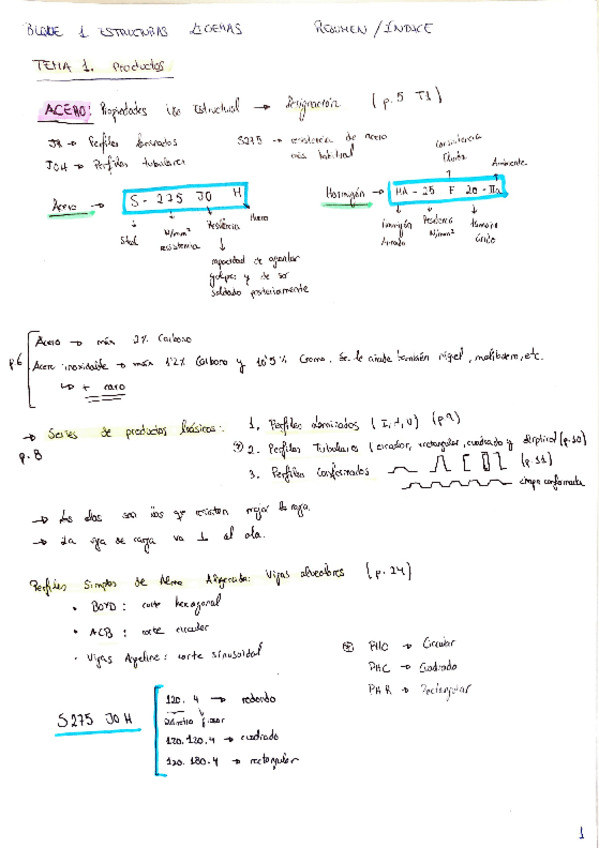 BLOQUE 1 ESTRUCTURAS LIGERAS RESUMEN / INDICE
TEMA 1. Productos
ACERO: Propiedades Estructural → Designación (p.5 T1)
JR → Perfiles laminados S275 → resistencia de acero
JOH → Perfiles tubulares más habitual
Consistencia
Fluida
Ambiente
Acero → S - 275 JO H Hormigón → HA - 25 F 20 - IIa
Steel N/mm² resistencia Resiliencia Hueco
Hormigón Armado Resistencia N/mm² Tamaño árido
capacidad de aguantar
golpes y de ser
soldado posteriormente
Acero → máx 2% Carbono
p.6 Acero inoxidable → máx 1'2% Carbono y 10'5% Cromo. Se le añade también níquel, molibdeno, etc.
↳ + caro
→ Series de productos básicos: 1. Perfiles laminados (I, H, U) (p.9)
p.8 2. Perfiles Tubulares (circular, rectangular, cuadrado y elíptico) (p.10)
3. Perfiles Conformados (p.11)
chapa conformada
→ Las alas son las que resisten mejor la
→ La de carga va ⊥ al ala.
Perfiles Simples de Alma Aligerada: Vigas alveolares (p.24)
• BOYD: corte hexagonal
• ACB: corte circular
• Vigas Angelina: corte sinusoidal
PHO → Circular
PHC → Cuadrado
PHR → Rectangular
S275 JO H
120. 4 → redondo
Diámetro Grosor
120.120.4 → cuadrado
120.180.4 → rectangular
1